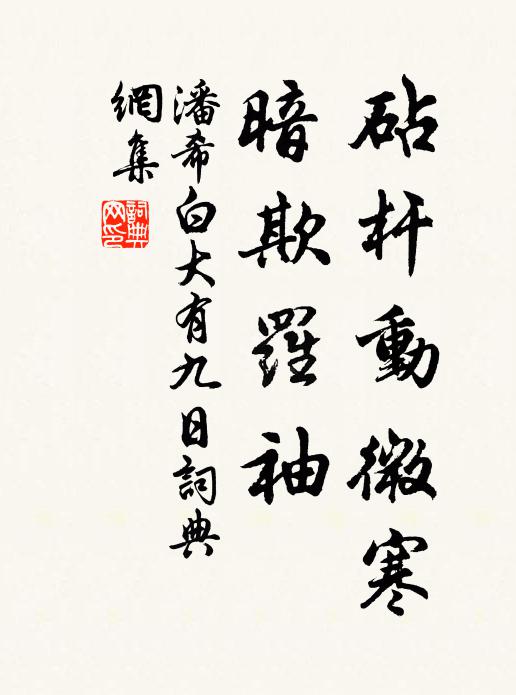 砧杵動微寒
暗欺羅袖
潘希白大有九日詞典
網集
詞典
网印